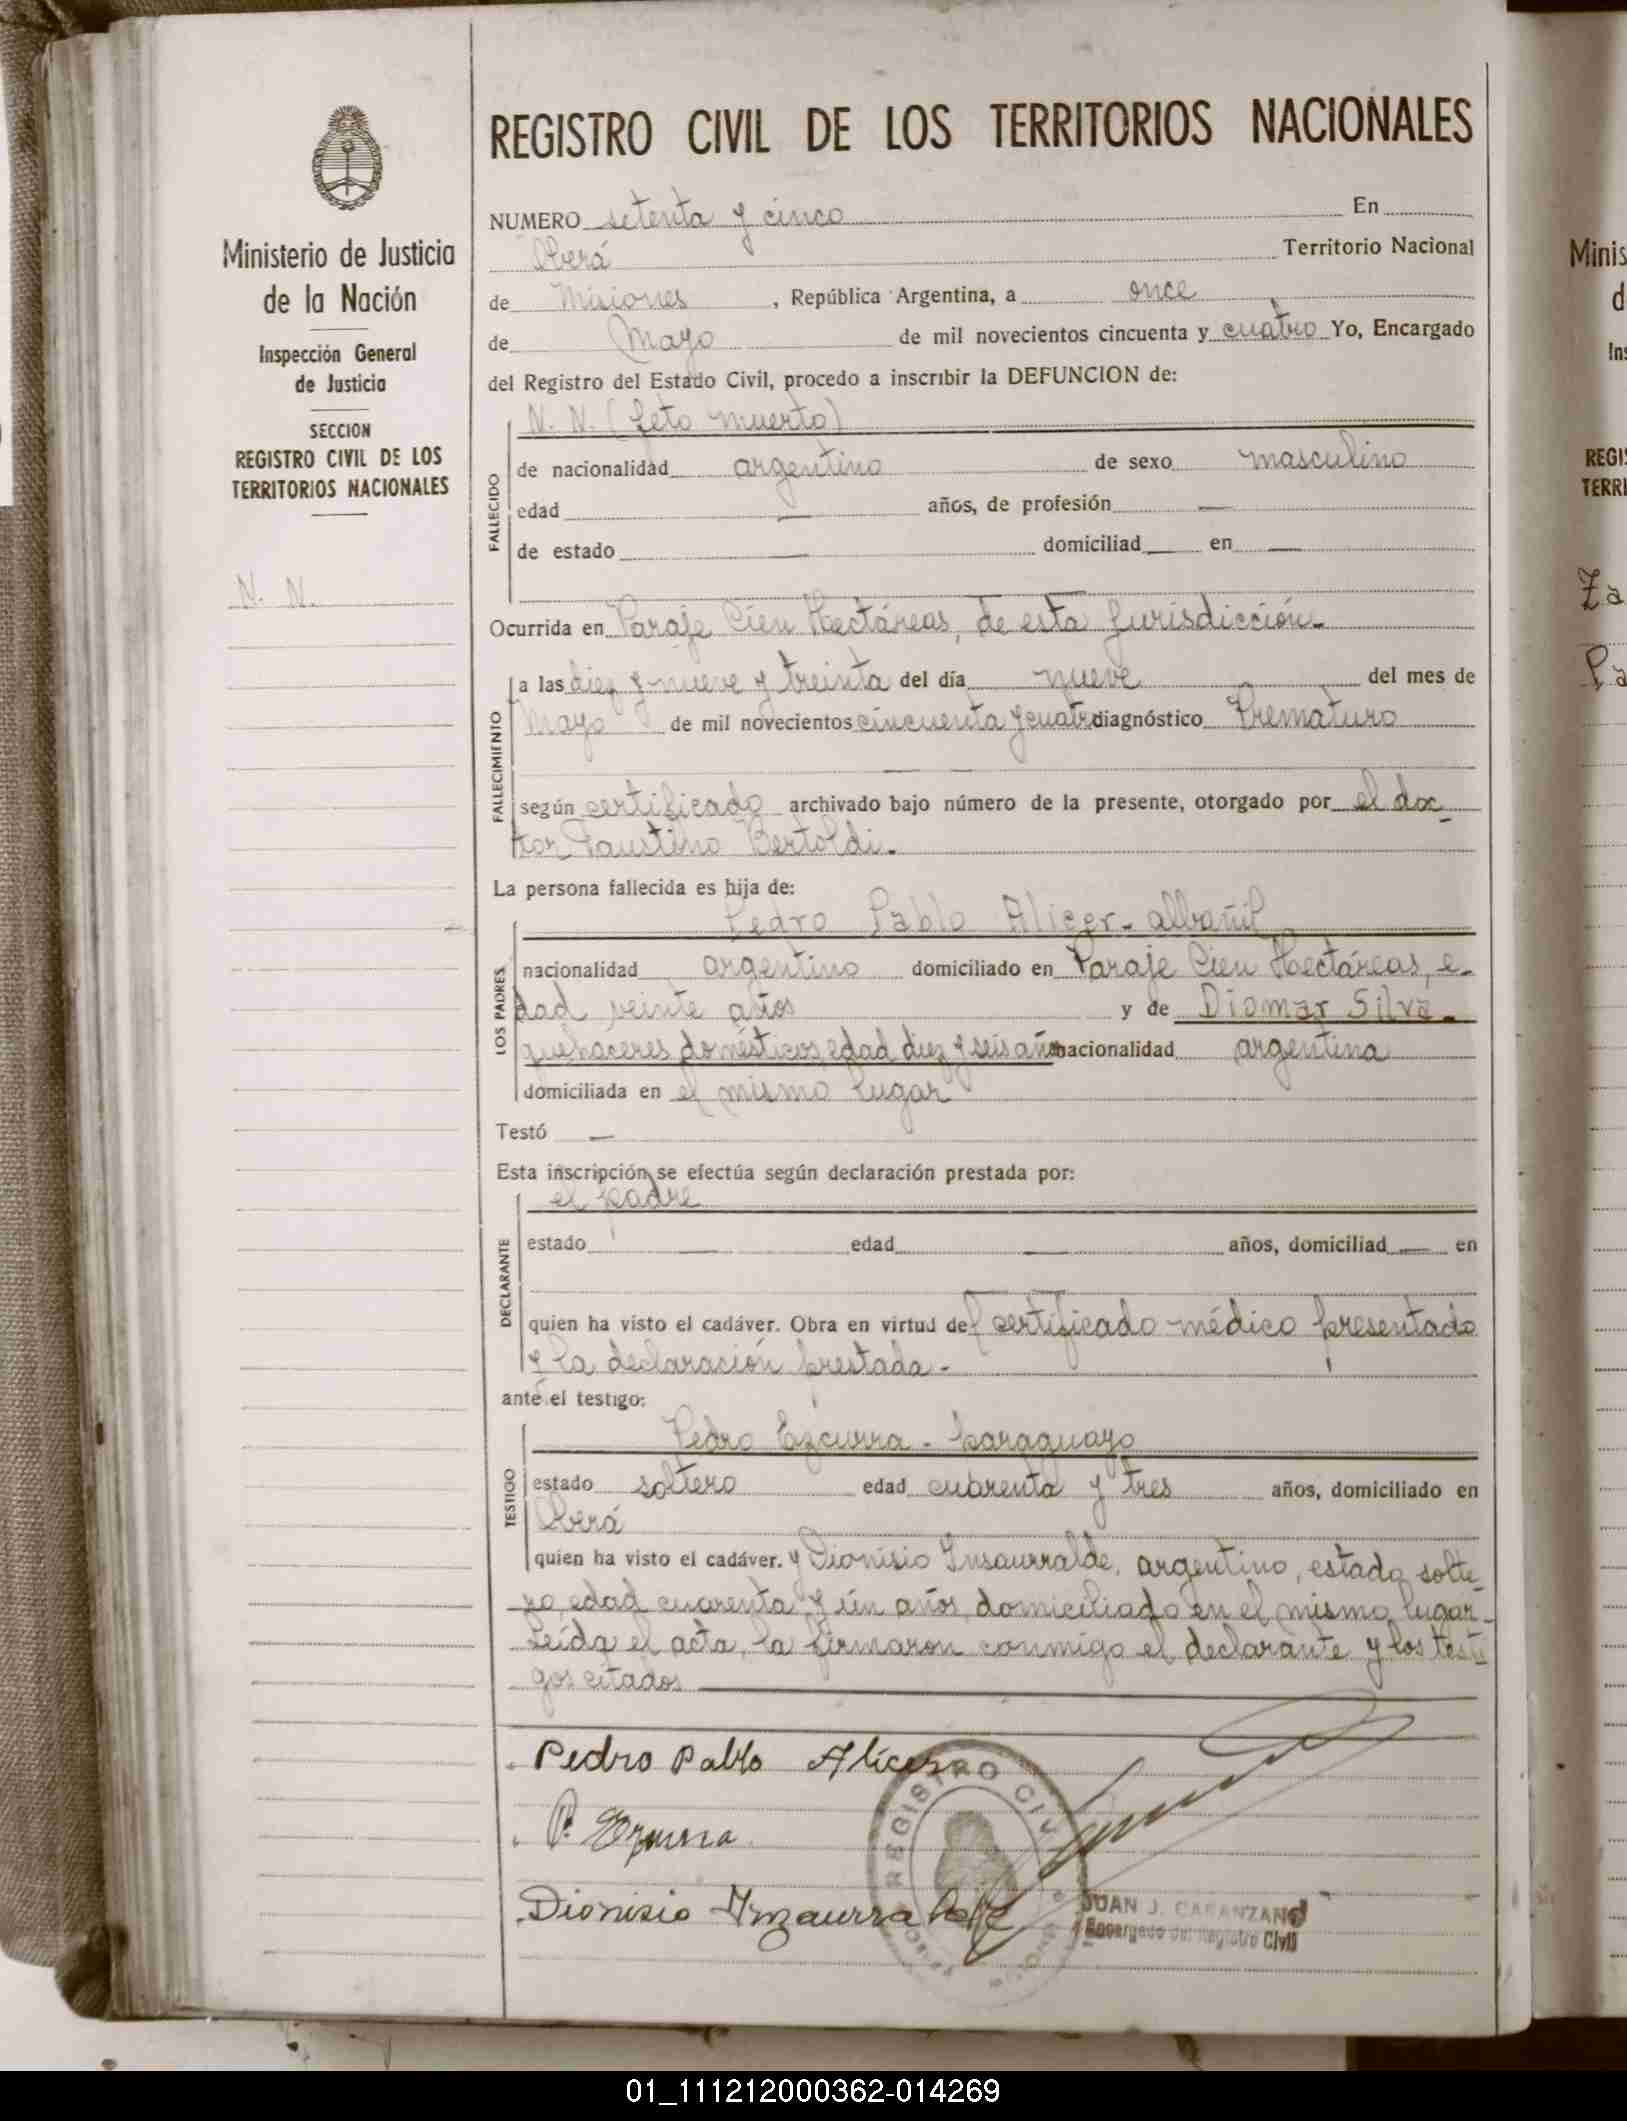 REGISTRO CIVIL DE LOS TERRITORIOS NACIONALES
Ministerio de Justicia
de la Nación
Inspección General
de Justicia
SECCION
REGISTRO CIVIL DE LOS
TERRITORIOS NACIONALES
N. N.
NUMERO setenta y cinco En
Oberá Territorio Nacional
de Misiones, República Argentina, a once
de Mayo de mil novecientos cincuenta y cuatro Yo, Encargado
del Registro del Estado Civil, procedo a inscribir la DEFUNCION de:
FALLECIDO
N. N. (feto muerto)
de nacionalidad argentino de sexo masculino
edad — años, de profesión —
de estado — domiciliad — en —
Ocurrida en Paraje Cien Hectáreas, de esta jurisdicción.-
FALLECIMIENTO
a las diez y nueve y treinta del día nueve del mes de
Mayo de mil novecientos cincuenta y cuatro diagnóstico Prematuro
—
según certificado archivado bajo número de la presente, otorgado por el doc-
tor Faustino Bertoldi.-
La persona fallecida es hija de:
LOS PADRES
Pedro Pablo Alicer - albañil
nacionalidad argentino domiciliado en Paraje Cien Hectáreas, e-
dad veinte años y de Diomar Silva.-
quehaceres domésticos, edad diez y seis años nacionalidad argentina
domiciliada en el mismo lugar
Testó —
Esta inscripción se efectúa según declaración prestada por:
DECLARANTE
el padre
estado — edad — años, domiciliad — en
quien ha visto el cadáver. Obra en virtud del certificado médico presentado
y la declaración prestada.-
ante el testigo:
TESTIGO
Pedro Ezcurra - paraguayo
estado soltero edad cuarenta y tres años, domiciliado en
Oberá
quien ha visto el cadáver. y Dionisio Insaurralde, argentino, estado solte-
ro, edad cuarenta y un años, domiciliado en el mismo lugar.-
Leída el acta, la firmaron conmigo el declarante y los testi-
gos citados
Pedro Pablo Alicer
P. Ezcurra
Dionisio Ynzaurralde
REGISTRO CIVIL
JUAN J. CARANZANO
Encargado del Registro Civil
Minis
d
Ins
REGIS
TERRI
Za
Pa
01_111212000362-014269